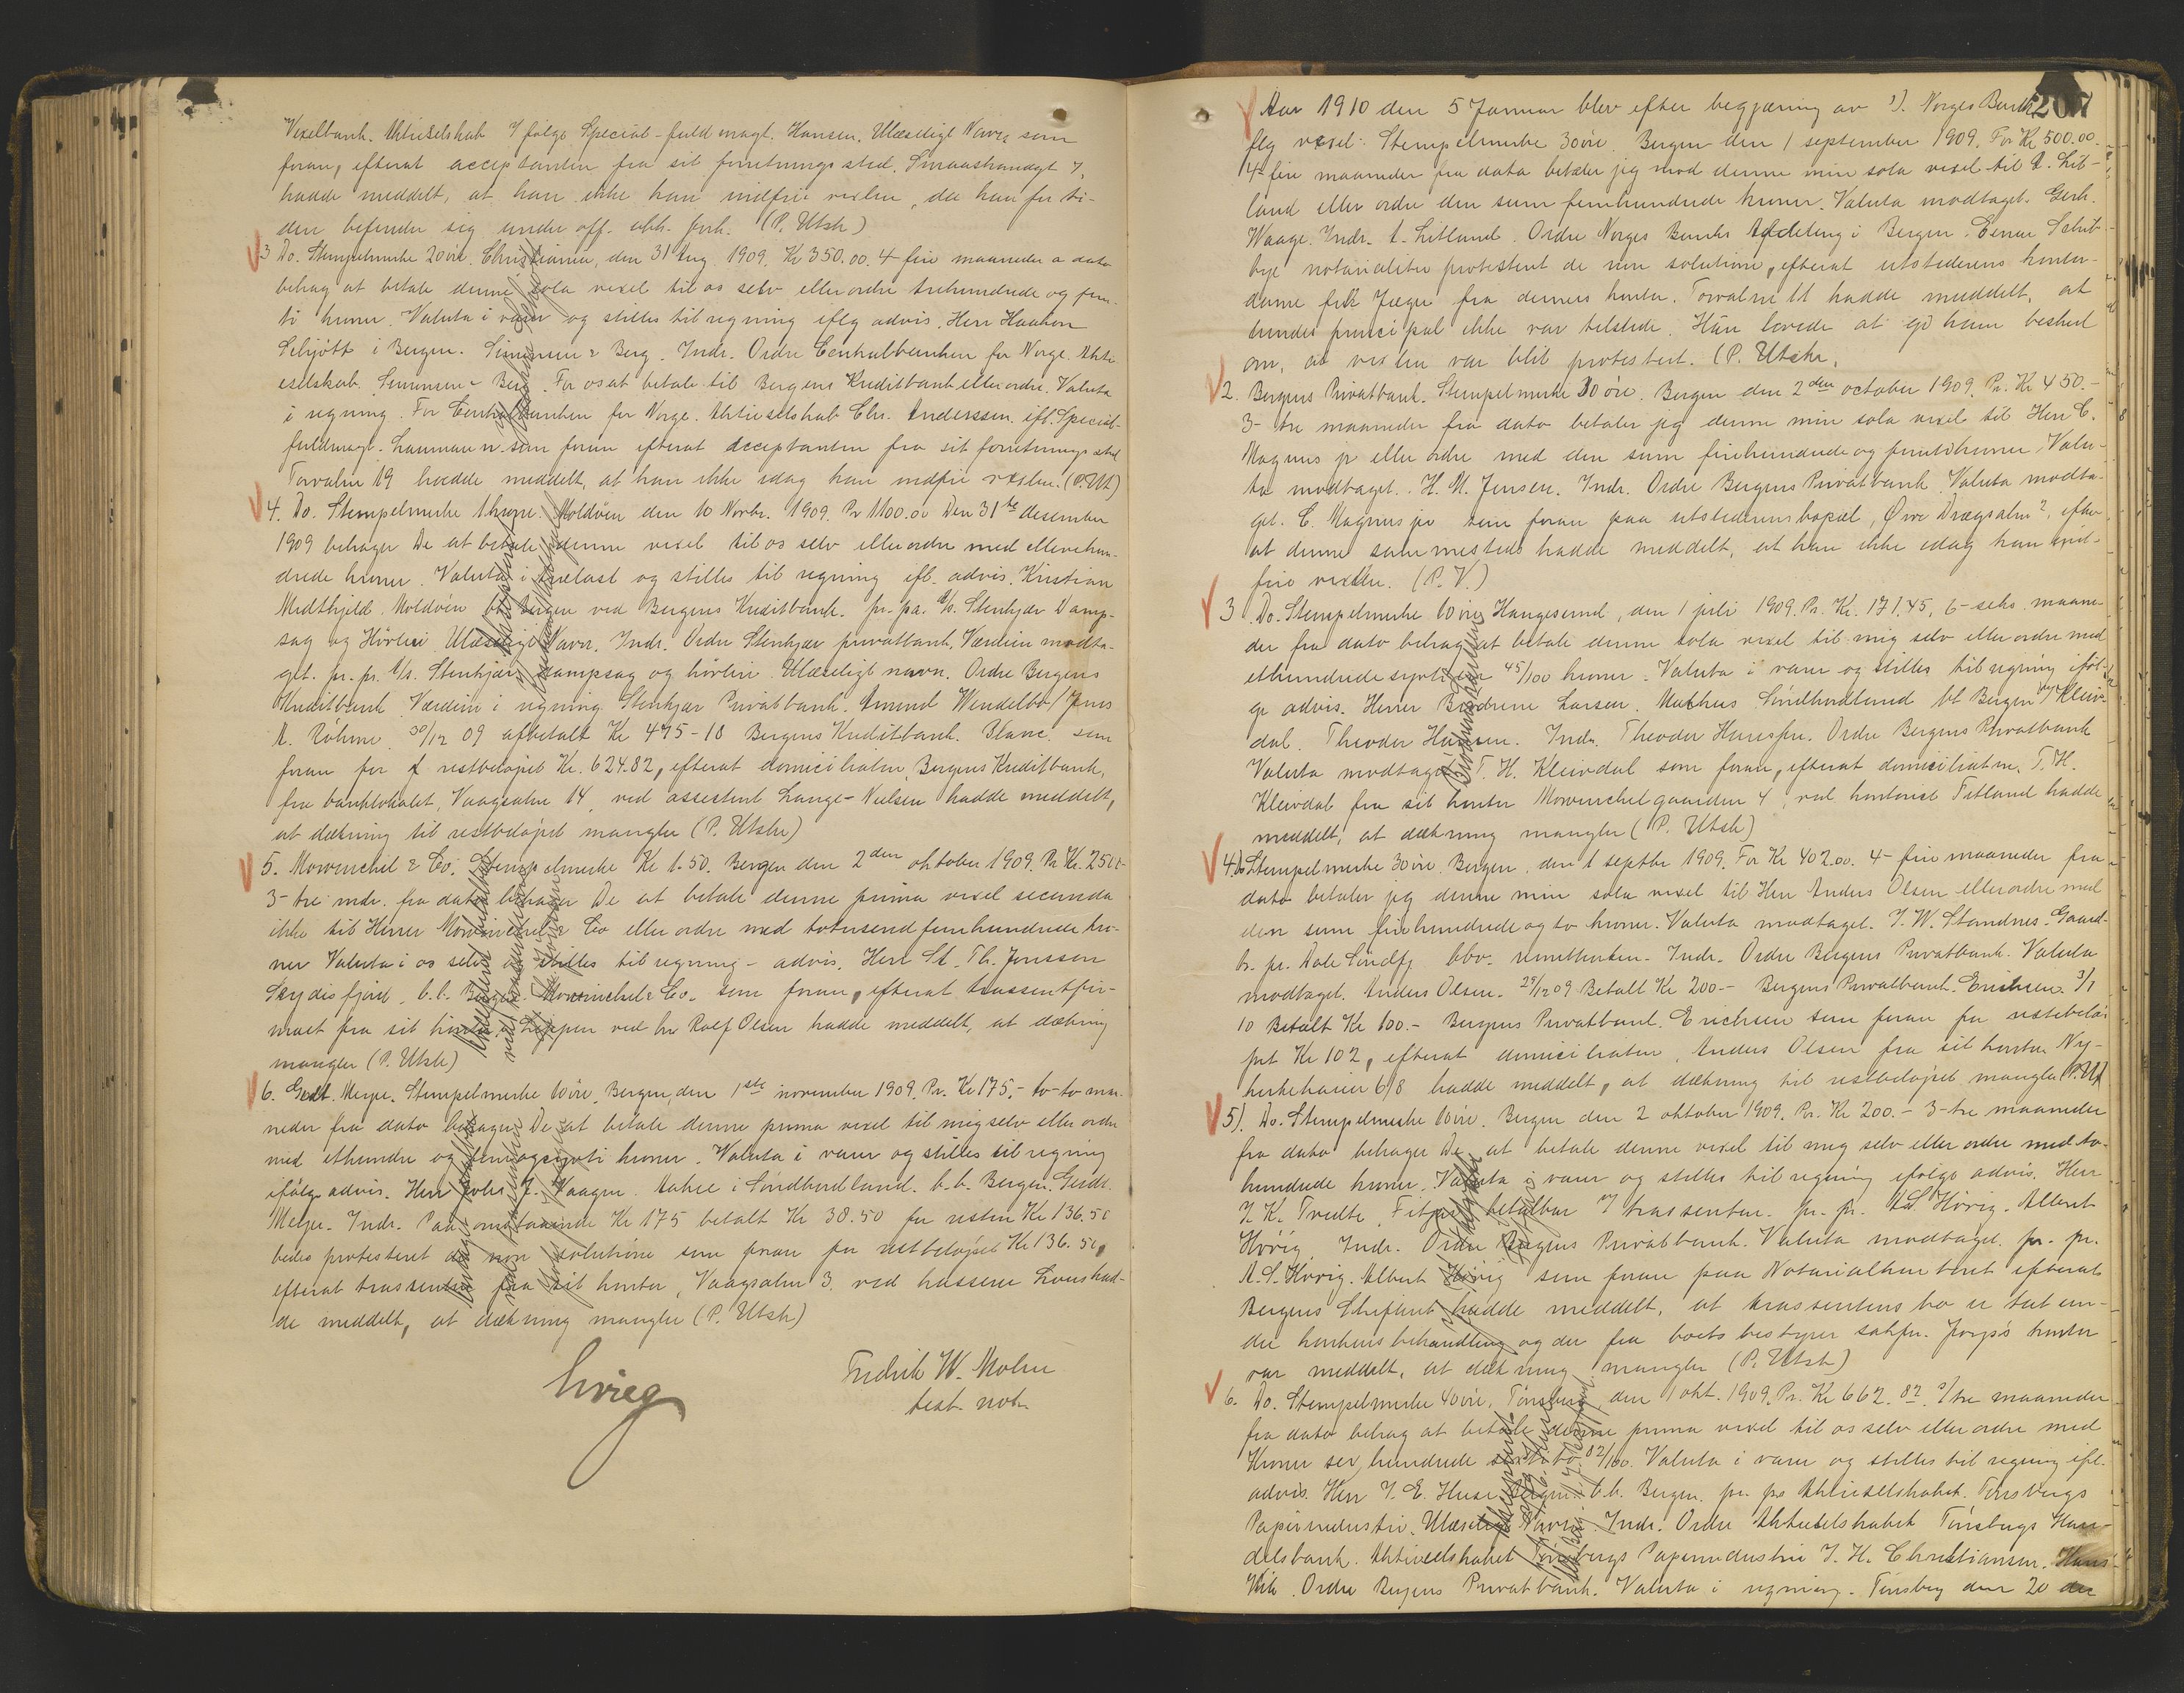 Vexelbank. Aktieselskab Ifølge Special-fuldmagt. Hansen. Ulæseligt Navn, som
foran, efterat acceptanten fra sit forretningssted, Smaastrandgt 7,
hadde meddelt, at han ikke kan indfrie vexlen, da han for ti-
den befinder sig under off. akk. forh. (P. Utsk)
3 Do. Stempelmerke 20 øre. Christiania, den 31 Aug. 1909. Kr 350.00. 4 fire maaneder a dato
behag at betale denne sola vexel til os selv eller ordre trehundrede og fem-
ti kroner. Valuta i varer og stilles til regning iflg advis. Herr Haakon
Schjøtt i Bergen. Simonsen & Berg. Indr. Ordre Centralbanken for Norge. Akti-
eselskab. Simonsen & Berg. For os at betale til Bergens Kreditbank eller ordre. Valuta
i regning. For Centralbanken for Norge. Aktieselskab Chr. Anderssen. ifl. Special-
fuldmagt. som foran efterat acceptanten fra sit forretningssted
Torvalm 19 hadde meddelt, at han ikke idag kan indfrie vexlen. (P. Ut)
4. Do. Stempelmerke 1 krone. Moldøen den 10 Novbr. 1909. Pr 1100.00 Den 31te desember
1909 behager De at betale denne vexel til os selv eller ordre med ellevehun-
drede kroner. Valuta i trælast og stilles til regning ifl. advis. Kristian
Midthjeld. Moldøen bb Bergen ved Bergens Kreditbank. pr. pa. A/S. Stenkjær Damp-
sag og Høvleri. Ulæseligt Navn. Indr. Ordre Stenkjær privatbank. Værdien modta-
get. pr. pr. A/s. Stenkjær dampsag og høvleri. Ulæseligt navn. Ordre Bergens
Kreditbank. Værdien i regning Stenkjær Privatbank. Amund Wendelbo/Jens
A. Røhme. 30/12 09 afbetalt Kr 475-18 Bergens Kreditbank. Blanc. som
foran for restbeløpet Kr. 624.82, efterat domiciliaten, Bergens Kreditbank,
fra banklokalet, Vaagsalm 14, ved assistent Lange-Nielsen hadde meddelt,
at dækning til restbeløpet mangler (P. Utskr)
5. Mowinckel & Co. Stempelmerke Kr 1.50. Bergen den 2den oktober 1909. Pr Kr. 2500
3- tre mdr. fra dato behager De at betale denne prima vexel secunda
ikke til Herrer Mowinckel & Co eller ordre med totusend femhundrede kro-
ner Valuta i os selv og stilles til regning - advis. Herr St. Th. Jonsson
Seydisfjord, b.b. Bergen. Mowinckel & Co. som foran, efterat trassentfir-
maet fra sit kontor, Leppen ved hr Rolf Olsen hadde meddelt, at dækning
mangler (P. Utsk)
6. Gerdt. Meyer. Stempelmerke 10 øre. Bergen, den 1ste november 1909. Pr. Kr 175.- to- to maa-
neder fra dato behager De at betale denne prima vexel til mig selv eller ordre
med ethundre og femogsyvti kroner. Valuta i varer og stilles til regning
ifølge advis. Herr Johs. J. Vaagen. Aakre i Søndhordland. b.b. Bergen. Gerdt.
Meyer. Indr. Paa omstaaende Kr 175 betalt Kr 38.50 for resten Kr 136.50
bedes protesteret de non solutione som foran for restbeløpet Kr 136.50,
efterat trassenten fra sit kontor, Vaagsalm 3. ved kasserer had-
de meddelt, at dækning mangler (P. Utsk)
Grieg
Fredrik W. Mohn
test. not.
207
Aar 1910 den 5 Januar blev efter begjæring av 1). Norges Bank
flg vexel: Stempelmerke 30 øre. Bergen den 1 september 1909. For Kr 500.00.
4 fire maaneder fra dato betaler jeg mod denne min sola vexel til A. Lit-
land eller ordre den sum femhundrede kroner. Valuta modtaget. Gerh.
Waage. Indr. A. Litland. Ordre Norges Banks Afdeling i Bergen. Einar Schib-
bye notorialiter protestert de non solutione, efterat utstederens kontor-
dame frk Jæger fra dennes kontor, Torvalm 11 hadde meddelt, at
hendes principal ikke var tilstede. Hun lovede at gi ham besked
om, at vexlen var blit protestert. (P. Utskr.
2. Bergens Privatbank. Stempelmerke 30 øre. Bergen den 2den october 1909. Pr. Kr 450.-
3- tre maaneder fra dato betaler jeg denne min sola vexel til Herr C.
Magnus jr eller ordre med den sum firehundrede og femti kroner Valu-
ta modtaget. H. M. Jensen. Indr. Ordre Bergens Privatbank. Valuta modta-
get. C. Magnus jr som foran paa utstederens bopæl, Øvre Drægsalm 2, efter
at denne sammesteds hadde meddelt, at han ikke idag kan ind-
frie vexlen. (P. V.)
3 Do. Stempelmerke 10 øre Haugesund, den 1 juli 1909. Pr. Kr. 171.45, 6- seks maane-
der fra dato behag at betale denne sola vexel til mig selv eller ordre med
ethundrede syvti en 45/100 kroner. Valuta i varer og stilles til regning iføl-
ge advis. Herrer Brødrene Larsen. Mathus Søndhordland bb Bergen v/ Kleiv-
dal. Theodor Hansen. Indr. Theodor Hansen. Ordre Bergens Privatbank
Valuta modtaget T. H. Kleivdal som foran, efterat domiciliaten, T. H.
Kleivdal fra sit kontor Mowinckelgaarden 4, ved kontorist Fitland hadde
meddelt, at dækning mangler (P. Utsk)
4. Do Stempelmerke 30 øre. Bergen, den 1 septbr 1909. For Kr 402.00. 4- fire maaneder fra
dato betaler jeg denne min sola vexel til Herr Anders Olsen eller ordre med
den sum firehundrede og to kroner. Valuta modtaget. J. W. Standnes. Gaard-
br. pr. Dale Søndfj. bbv. Indr. Ordre Bergens Privatbank. Valuta
modtaget. Anders Olsen. 29/12 09 Betalt Kr 200.- Bergens Privatbank. Erichsen 3/1
10 Betalt Kr 100.- Bergens Privatbank. Erichsen som foran for restebelø-
pet Kr 102, efterat domiciliaten, Anders Olsen fra sit kontor Ny-
kirkekaien 6/8 hadde meddelt, at dækning til restbeløpet mangler (P. Ut)
5). Do. Stempelmerke 10 øre. Bergen den 2 oktober 1909. Pr. Kr 200.- 3- tre maaneder
fra dato behager De at betale denne vexel til mig selv eller ordre med to-
hundrede kroner. Valuta i varer og stilles til regning ifølge advis. Herr
J. K. Tvedte, Fitjar betalbar trassenten. pr. pr. A. S. Høvig. Albert
Høvig. Indr. Ordre Bergens Privatbank. Valuta modtaget. pr. pr.
A. S. Høvig. Albert Høvig som foran paa Notarialkontoret efterat
Bergens Skifteret hadde meddelt, at trassentens bo er tat un-
der konkurs behandling og der fra boets bestyrer sakfør. kontor
var meddelt, at dækning mangler (P. Utsk)
6. Do. Stempelmerke 40 øre. Tønsberg, den 1 okt. 1909. Pr. Kr 662.82 3/ tre maaneder
fra dato behag at betale denne prima vexel til os selv eller ordre med
Kroner sex hundrede sexti to 82/100. Valuta i varer og stilles til regning ifl.
advis. Herr J. E. Huse Bergen b.b. Bergen. pr. pr. Aktieselskabet. Tønsbergs
Papirindustri. Ulæseligt Navn. Indr. Ordre Aktieselskabet Tønsbergs Han-
delsbank. Aktieselskabet Tønsbergs Papirindustri J. H. Christiansen. Hans
Ordre Bergens Privatbank. Valuta i regning. Tønsberg den 20 de